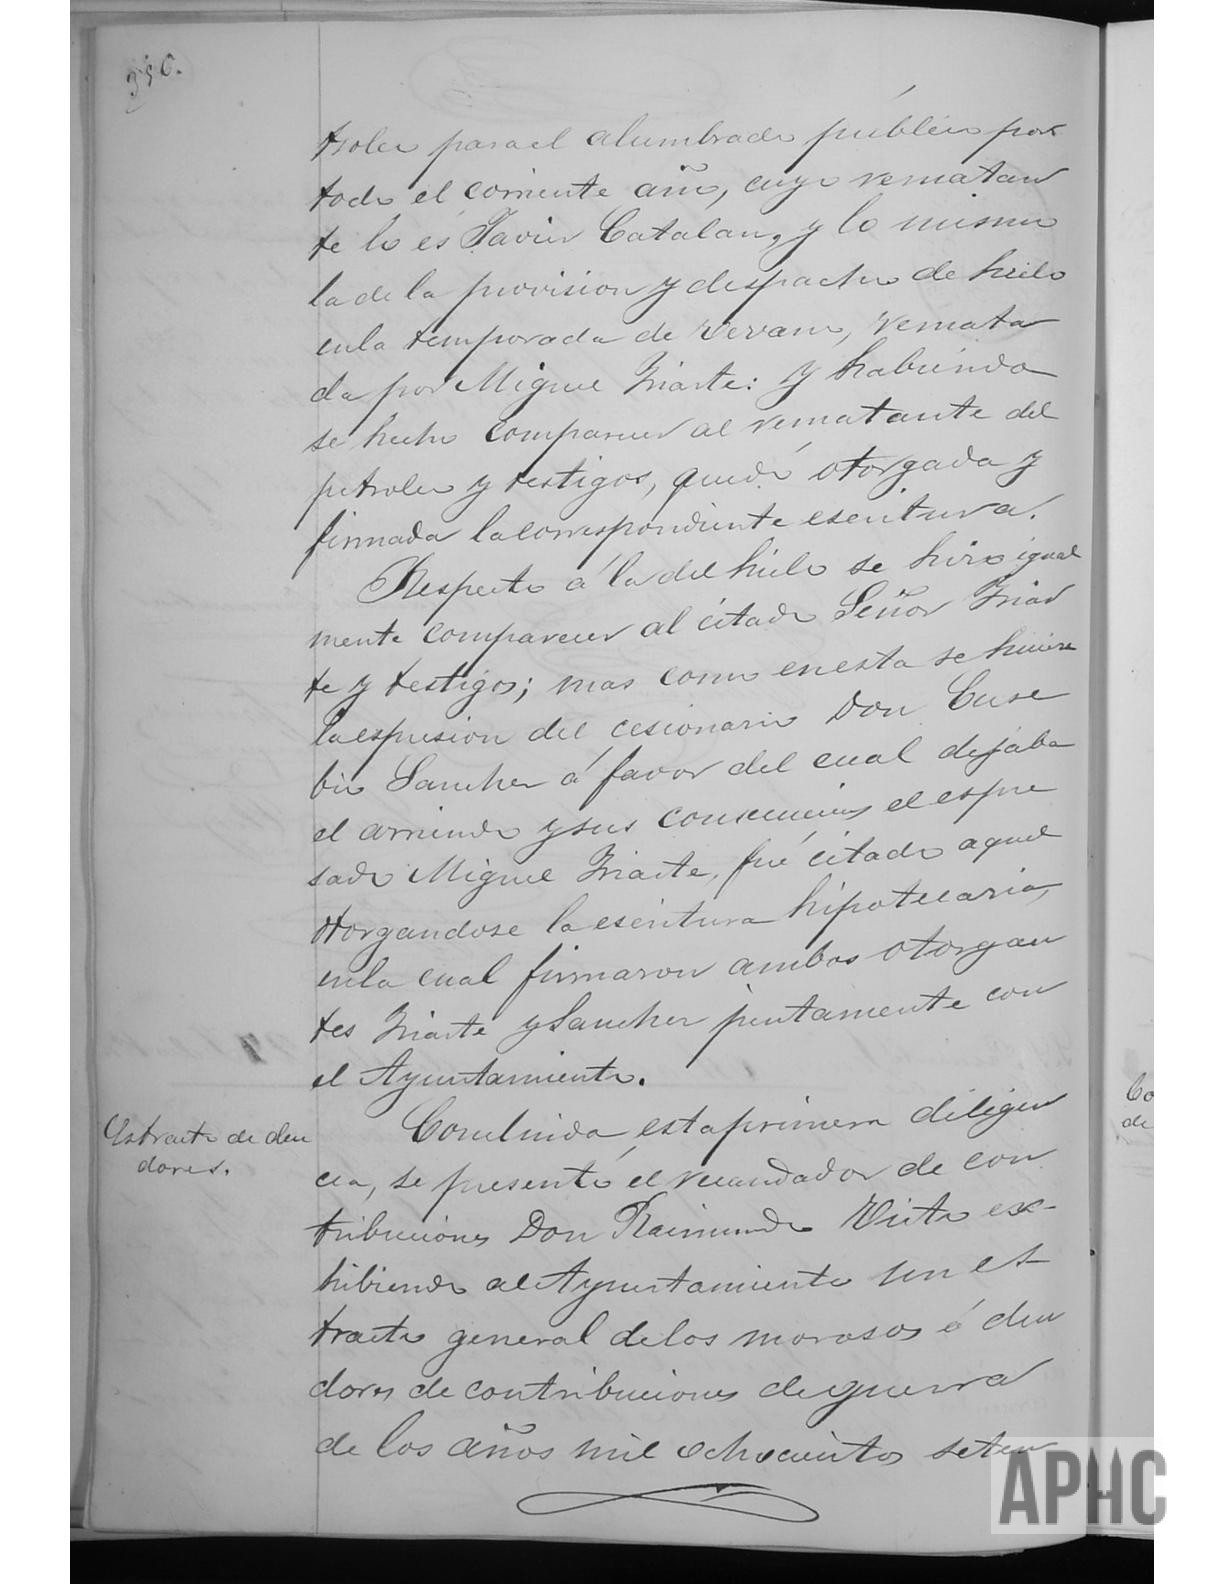 350.
troleo para el alumbrado público por
todo el corriente año, cuyo rematan
te lo es Javier Catalan, y lo mismo
la de la provision y despacho de hielo
en la temporada de verano, remata
da por Miguel Iriarte: y habiendo
se hecho comparecer al rematante del
petroleo y testigos, quedó otorgada y
firmada la correspondiente escritura.
Respecto á la del hielo se hizo igual
mente comparecer al citado Señor Iriar
te y testigos; mas como en esta se hiciera
la espresion del cesionario Don Euse
bio Sanchez á favor del cual dejaba
el arriendo y sus consecuencias el espre
sado Miguel Iriarte, fué citado aquel
otorgandose la escritura hipotecaria,
en la cual firmaron ambos otorgan
tes Iriarte y Sanchez juntamente con
el Ayuntamiento.
Estracto de deu
dores.
Concluida esta primera diligen
cia, se presentó el recaudador de con
tribuciones Don Raimundo ex-
hibiendo al Ayuntamiento un es-
tracto general de los morosos ó deu
dores de contribuciones de guerra
de los años mil ochocientos seten
Co
de
APHC